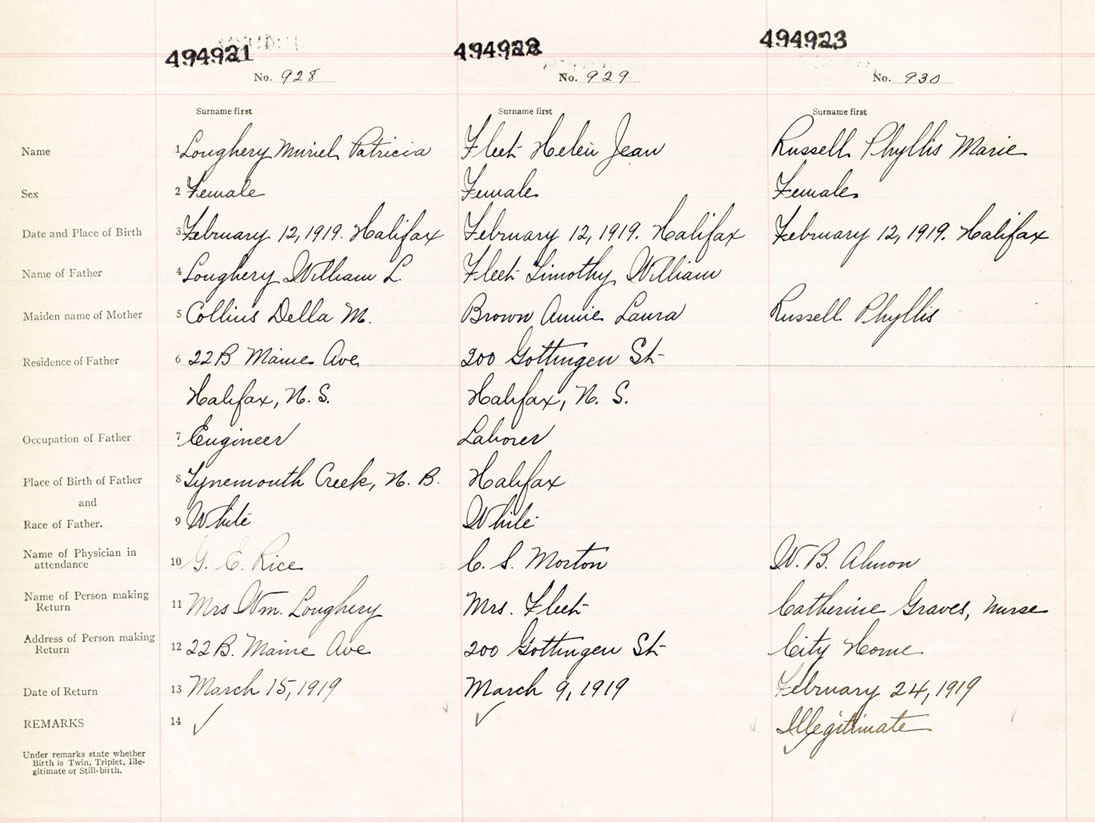 494921 494922 494923
No. 928 No. 929 No. 930
Surname first Surname first Surname first
Name 1 Loughery Muriel Patricia Fleet Helen Jean Russell Phyllis Marie
Sex 2 Female Female Female
Date and Place of Birth 3 February 12, 1919. Halifax February 12, 1919. Halifax February 12, 1919. Halifax
Name of Father 4 Loughery William L. Fleet Timothy William
Maiden name of Mother 5 Collins Della M. Brown Annie Laura Russell Phyllis
Residence of Father 6 22B Maine Ave 200 Gottingen St
Halifax, N. S. Halifax, N. S.
Occupation of Father 7 Engineer Laborer
Place of Birth of Father 8 Tynemouth Creek, N. B. Halifax
and
Race of Father. 9 White White
Name of Physician in
attendance 10 G. E. Rice C. S. Morton W. B. Almon
Name of Person making
Return 11 Mrs Wm. Loughery Mrs. Fleet Catherine Graves, Nurse
Address of Person making
Return 12 22B. Maine Ave 200 Gottingen St City Home
Date of Return 13 March 15, 1919 March 9, 1919 February 24, 1919
REMARKS 14 ✓ ✓ Illegitimate
Under remarks state whether
Birth is Twin, Triplet, Ille-
gitimate or Still-birth.